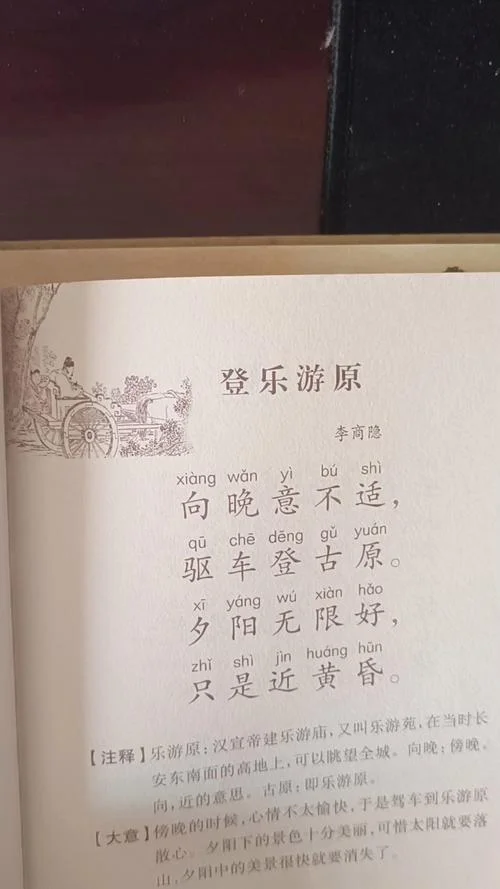 登乐游原
李商隐
xiàng wǎn yì bú shì
向晚意不适，
qū chē dēng gǔ yuán
驱车登古原。
xī yáng wú xiàn hǎo
夕阳无限好，
zhǐ shì jìn huáng hūn
只是近黄昏。
【注释】乐游原：汉宣帝建乐游庙，又叫乐游苑，在当时长
安东南面的高地上，可以眺望全城。向晚：傍晚。
向，近的意思。古原：即乐游原。
【大意】傍晚的时候，心情不太愉快，于是驾车到乐游原
散心。夕阳下的景色十分美丽，可惜太阳就要落
山，夕阳中的美景很快就要消失了。